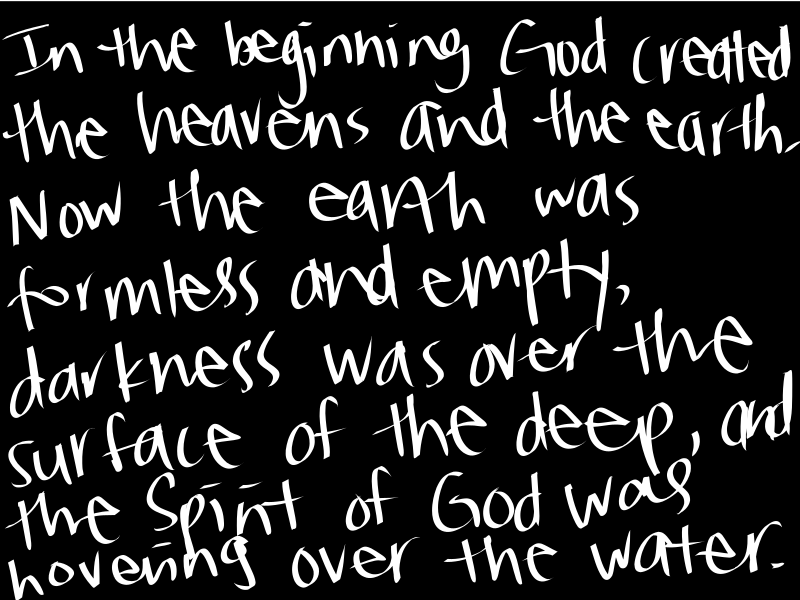 In the beginning God created
the heavens and the earth.
Now the earth was
formless and empty,
darkness was over the
surface of the deep, and
the Spirit of God was
hovering over the water.